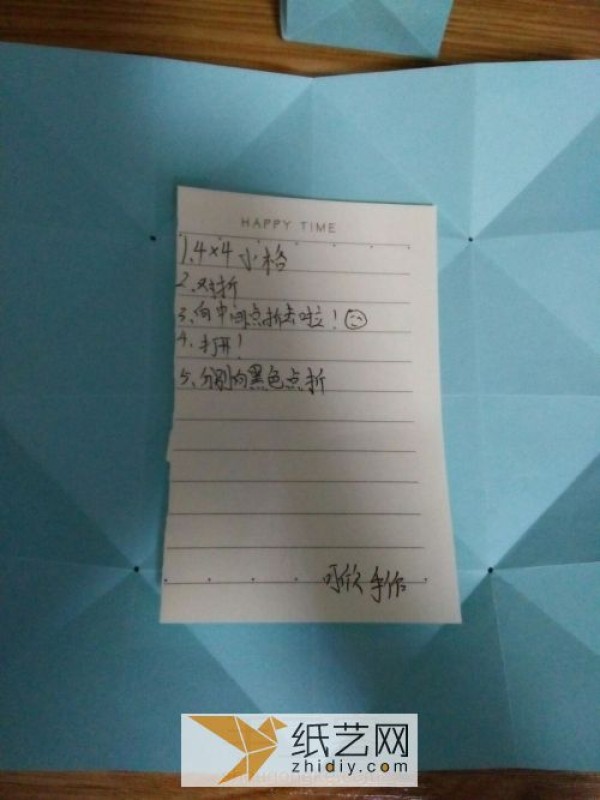 HAPPY TIME
1.4×4 小格
2.对折
3.向中间点折去啦！
4.打开！
5.分别向黑色点折
可欣 手作
纸艺网
zhidiy.com